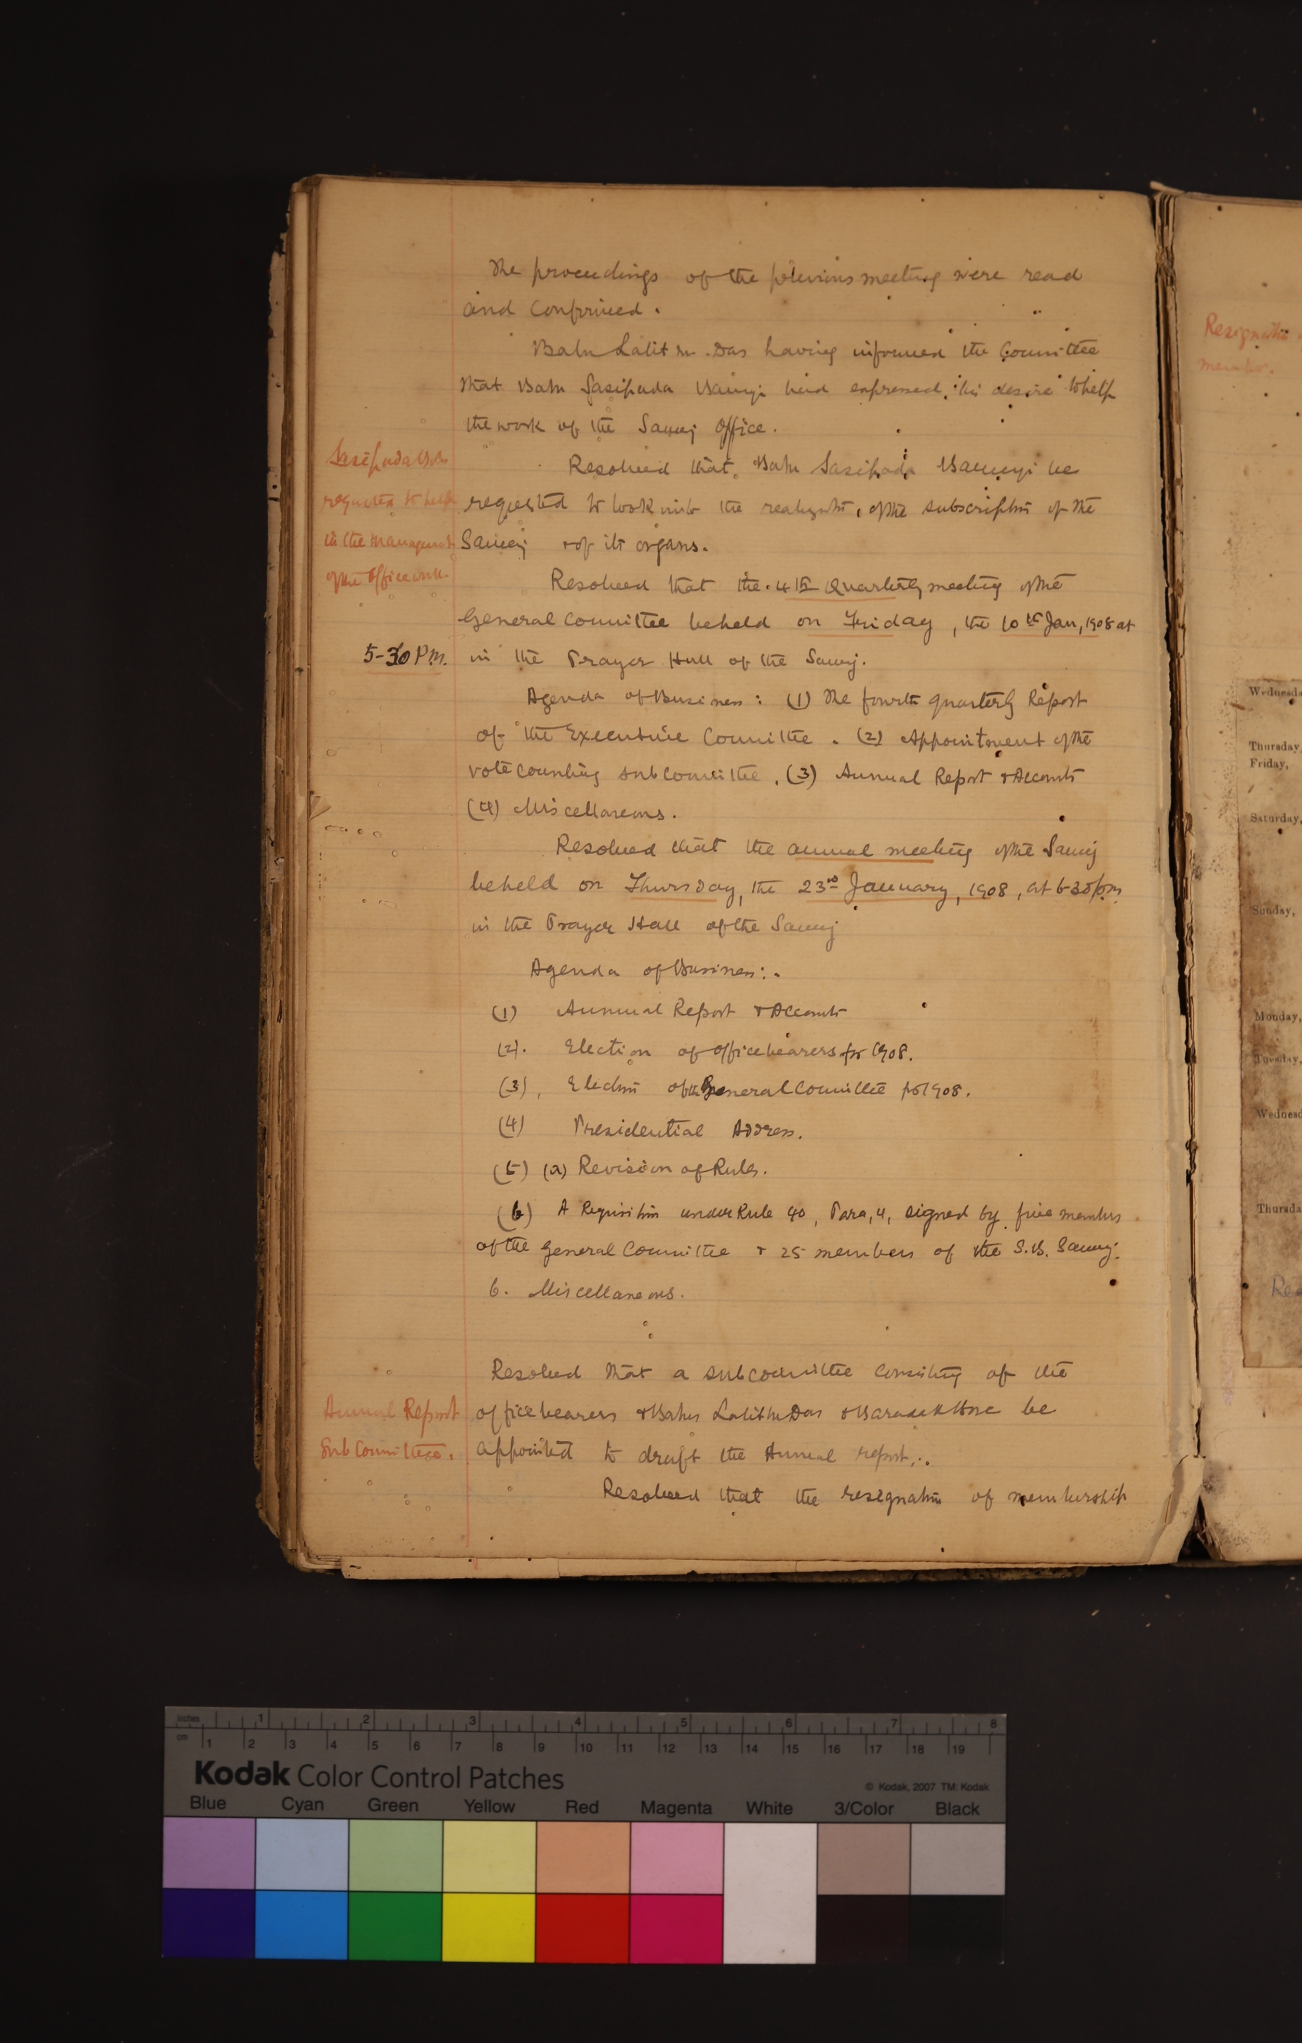 The proceedings of the previous meeting were read
and confirmed.
Babu Lalit M. Das having informed the Committee
that Babu Sasipada Banerji had expressed his desire to help
the work of the Samaj Office.
Sasipada Babu
requested to help
in the management
of the Office work.
Resolved that Babu Sasipada Banerji be
requested to look into the realization of the subscription of the
Samaj & of its organs.
Resolved that the 4th Quarterly meeting of the
General Committee be held on Friday, the 10th Jan, 1908 at
5-30 P.M. in the Prayer Hall of the Samaj.
Agenda of Business: (1) The fourth quarterly Report
of the Executive Committee. (2) Appointment of the
vote counting subcommittee. (3) Annual Report & Accounts
(4) Miscellaneous.
Resolved that the annual meeting of the Samaj
be held on Thursday, the 23rd January, 1908, at 6-30 p.m.
in the Prayer Hall of the Samaj
Agenda of Business:.
(1) Annual Report & Accounts
(2). Election of officebearers for 1908.
(3), Election of the General Committee for 1908.
(4) Presidential Address.
(5) (a) Revision of Rules.
(b) A Requisition under Rule 40, Para, 4, signed by five members
of the General Committee & 25 members of the S.B. Samaj.
6. Miscellaneous.
Resolved that a subcommittee consisting of the
Annual Report
Sub Committee.
officebearers & Babus Lalit M Das & Barada K Bose be
appointed to draft the Annual report.
Resolved that the resignation of membership
Resignation
member.
Wednesda
Thursday,
Friday,
Saturday,
Sunday,
Monday,
Tuesday,
Wednesd
Thursda
Res
inches 1 2 3 4 5 6 7 8
cm 1 2 3 4 5 6 7 8 9 10 11 12 13 14 15 16 17 18 19
Kodak Color Control Patches
© Kodak, 2007 TM: Kodak
Blue Cyan Green Yellow Red Magenta White 3/Color Black